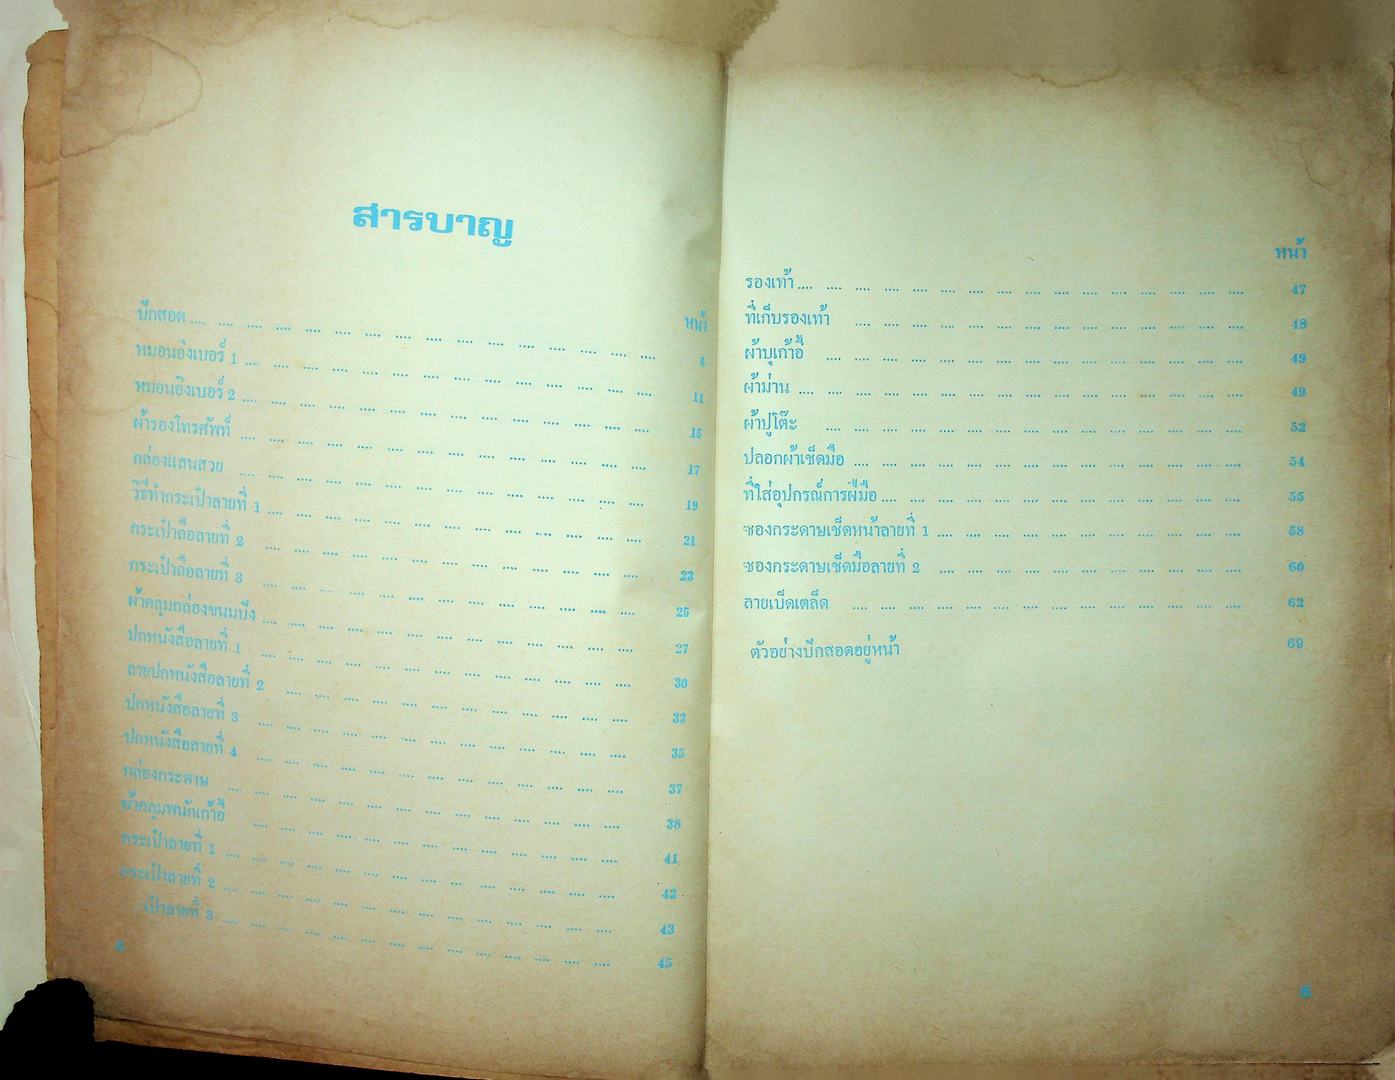 สารบาญ
หน้า
ปักสอด .... .... .... .... .... .... .... .... .... .... .... .... .... .... .... .... 6
หมอนอิงเบอร์ 1 .... .... .... .... .... .... .... .... .... .... .... .... .... .... 11
หมอนอิงเบอร์ 2 .... .... .... .... .... .... .... .... .... .... .... .... .... .... 15
ผ้ารองโทรศัพท์ .... .... .... .... .... .... .... .... .... .... .... .... .... .... 17
กล่องแสนสวย .... .... .... .... .... .... .... .... .... .... .... .... .... .... 19
วิธีทำกระเป๋าลายที่ 1 .... .... .... .... .... .... .... .... .... .... .... .... .... 21
กระเป๋าถือลายที่ 2 .... .... .... .... .... .... .... .... .... .... .... .... .... 23
กระเป๋าถือลายที่ 3 .... .... .... .... .... .... .... .... .... .... .... .... .... 25
ผ้าคลุมกล่องขนมปัง .... .... .... .... .... .... .... .... .... .... .... .... .... 27
ปกหนังสือลายที่ 1 .... .... .... .... .... .... .... .... .... .... .... .... .... 30
ลายปกหนังสือลายที่ 2 .... .... .... .... .... .... .... .... .... .... .... .... 33
ปกหนังสือลายที่ 3 .... .... .... .... .... .... .... .... .... .... .... .... .... 35
ปกหนังสือลายที่ 4 .... .... .... .... .... .... .... .... .... .... .... .... .... 37
กล่องกระดาษ .... .... .... .... .... .... .... .... .... .... .... .... .... .... 38
ผ้าคลุมพนักเก้าอี้ .... .... .... .... .... .... .... .... .... .... .... .... .... 41
กระเป๋าลายที่ 1 .... .... .... .... .... .... .... .... .... .... .... .... .... .... 42
กระเป๋าลายที่ 2 .... .... .... .... .... .... .... .... .... .... .... .... .... .... 43
เป๋าลายที่ 3 .... .... .... .... .... .... .... .... .... .... .... .... .... .... 45
หน้า
รองเท้า .... .... .... .... .... .... .... .... .... .... .... .... .... .... .... .... 47
ที่เก็บรองเท้า .... .... .... .... .... .... .... .... .... .... .... .... .... .... 48
ผ้าบุเก้าอี้ .... .... .... .... .... .... .... .... .... .... .... .... .... .... .... 49
ผ้าม่าน .... .... .... .... .... .... .... .... .... .... .... .... .... .... .... .... 49
ผ้าปูโต๊ะ .... .... .... .... .... .... .... .... .... .... .... .... .... .... .... 52
ปลอกผ้าเช็ดมือ .... .... .... .... .... .... .... .... .... .... .... .... .... .... 54
ที่ใส่อุปกรณ์การฝีมือ .... .... .... .... .... .... .... .... .... .... .... .... .... 55
ซองกระดาษเช็ดหน้าลายที่ 1 .... .... .... .... .... .... .... .... .... .... .... 58
ซองกระดาษเช็ดมือลายที่ 2 .... .... .... .... .... .... .... .... .... .... .... 60
ลายเบ็ดเตล็ด .... .... .... .... .... .... .... .... .... .... .... .... .... .... 62
ตัวอย่างปักสอดอยู่หน้า 69
5